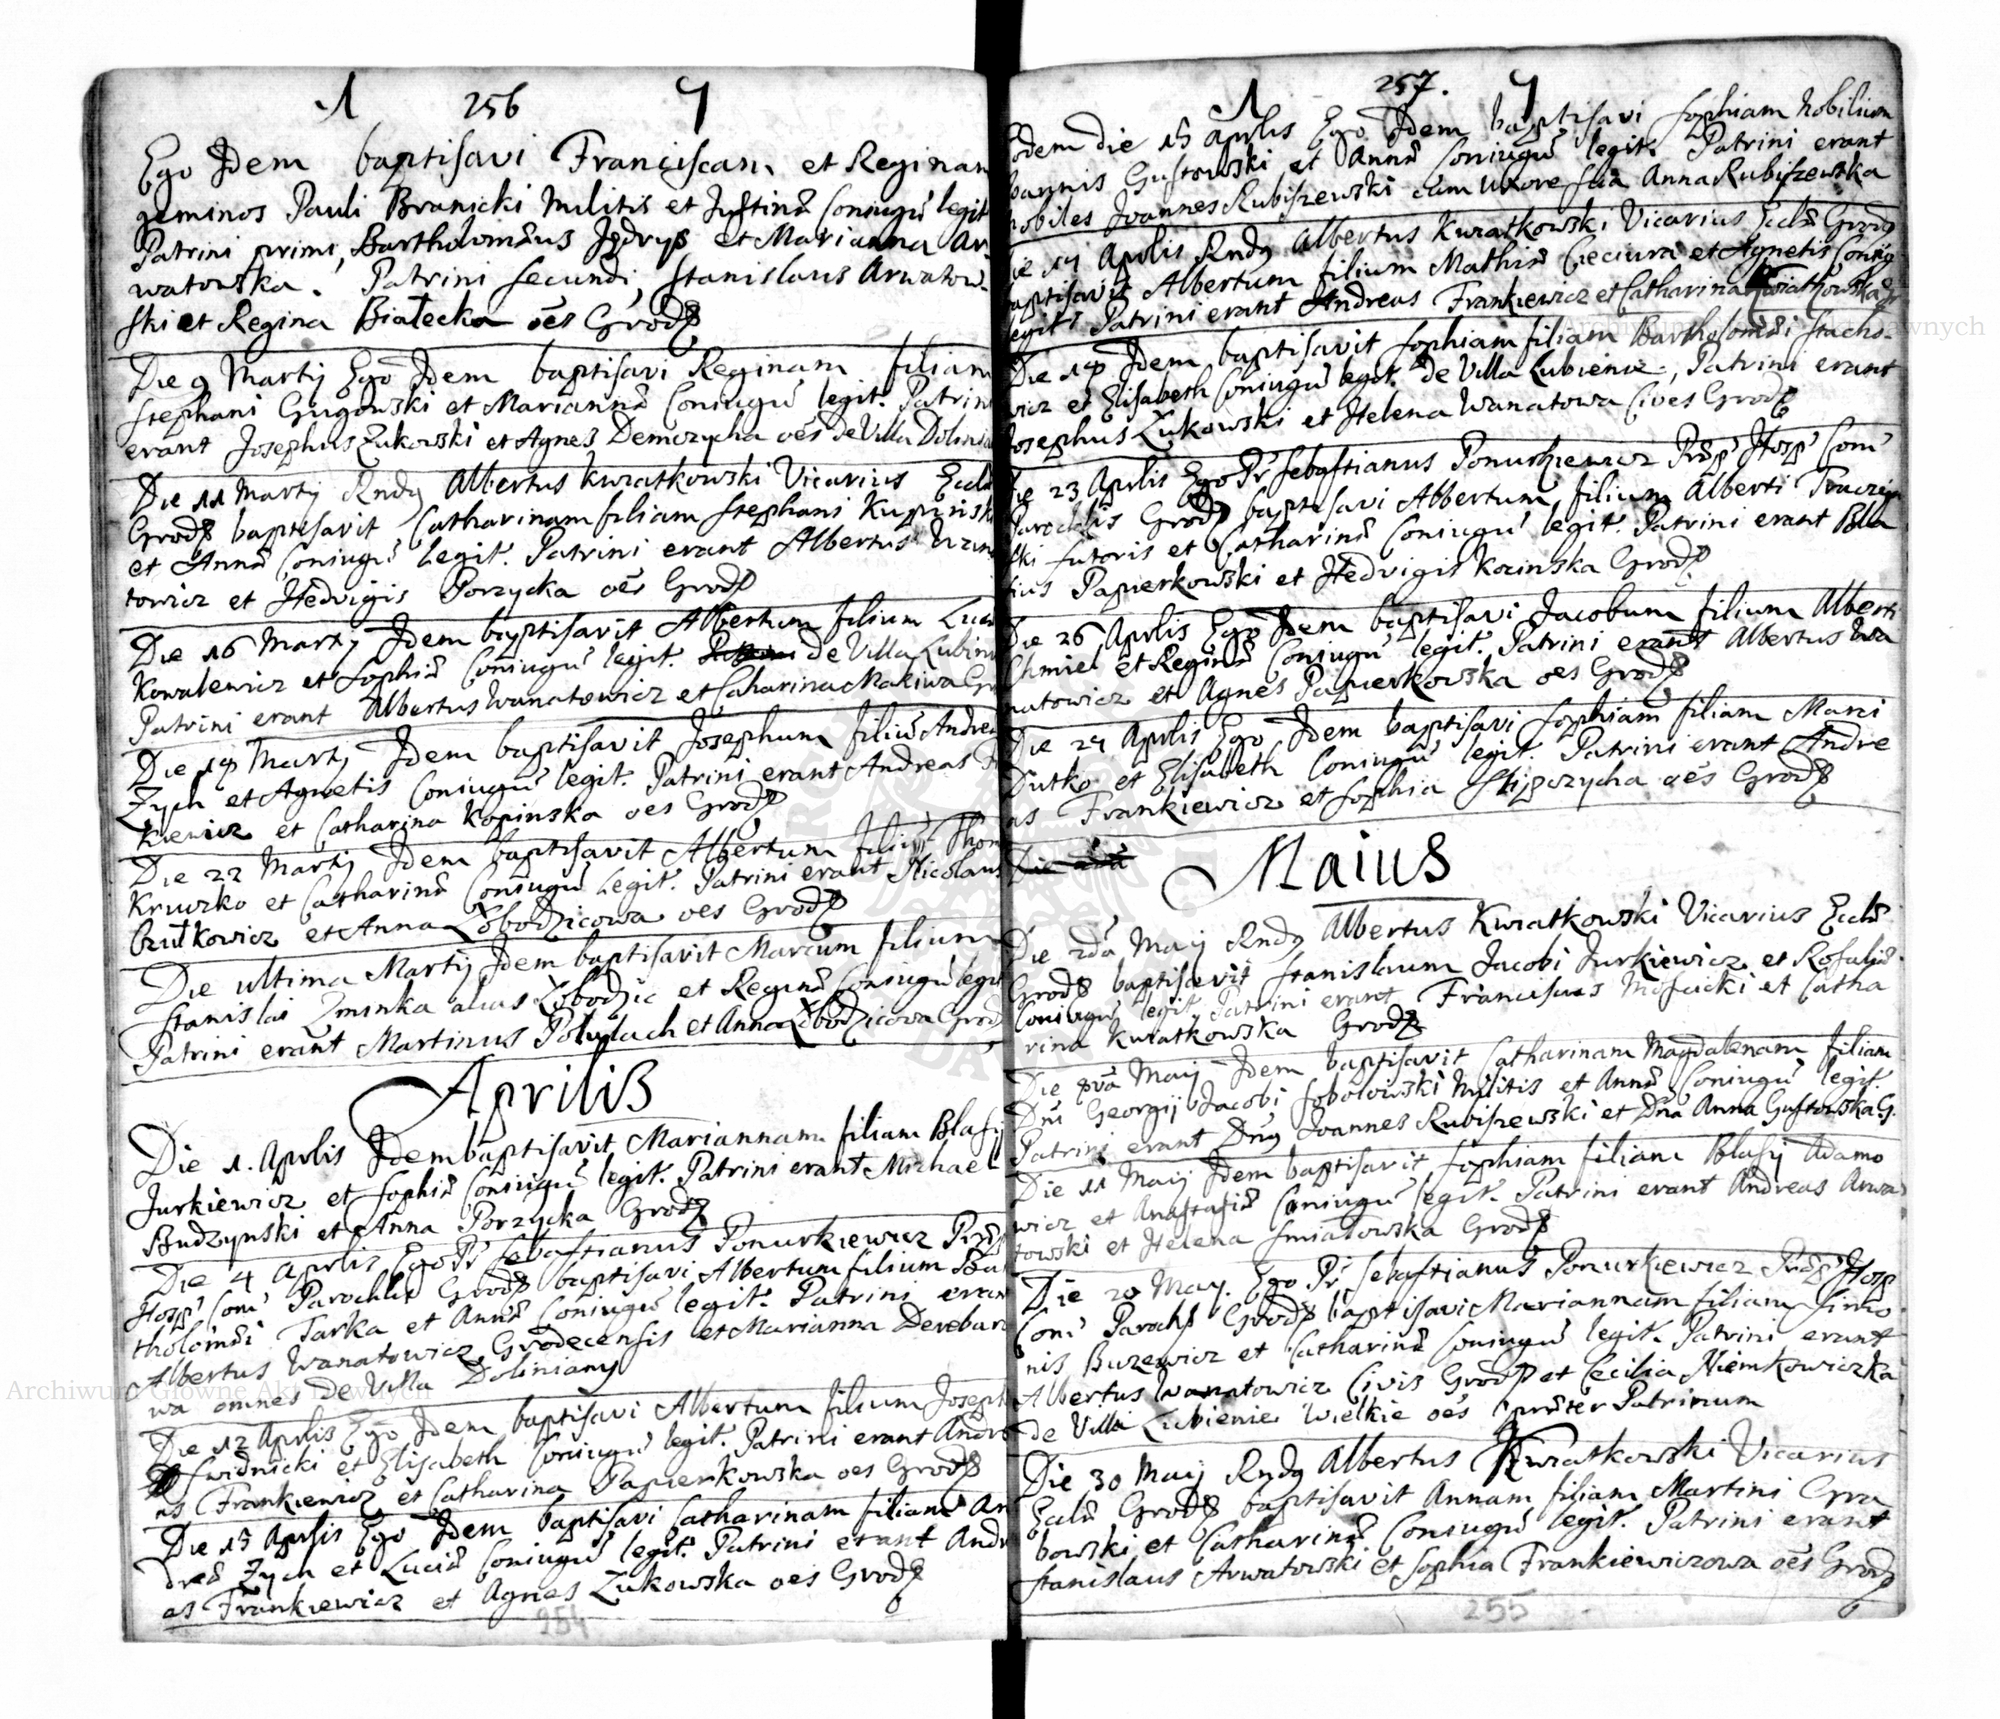 1 256 7
Ego Idem baptisavi Franciscam et Reginam
geminos Pauli Branicki Militis et Justinæ Coniugū legit
Patrini primi, Bartholomæus Jędrys et Marianna Ar-
watowska. Patrini secundi, Stanislaus Arwatow-
ski et Regina Białecka oēs Grod
Die 9 Martij Ego Idem baptisavi Reginam filiam
Stephani Gugowski et Mariannæ Coniugū legit. Patrini
erant Josephus Zukowski et Agnes Demczycha oēs de Villa Dolinia
Die 11 Martij Rndg Albertus Kwiatkowski Vicarius Eccl
Grod baptisavit Catharinam filiam Stephani Kupinsk
et Annæ Coniugū legit. Patrini erant Albertus
towicz et Hedvigis Porzycka oēs Grod
Die 16 Martij Idem baptisavit Albertum filium Luc
Kowalewicz et Sophiæ Coniugū legit. de Villa Lubin
Patrini erant Albertus Wanatowicz et Catharina Makiwa Gr
Die 19 Martij Idem baptisavit Josephum filiū Andre
Zych et Agnetis Coniugū legit. Patrini erant Andreas Fr
kiewicz et Catharina Kopinska oes Grod
Die 22 Martij Idem baptisavit Albertum filiū Thom
Kruczko et Catharinæ Coniugū Legit. Patrini erant Nicolaus
Czułkowicz et Anna Łobodzicowa oes Grod
Die ultima Martij Idem baptisavit Marcum filium
Stanislai Zminka alias Łobodzic et Reginæ Coniugū legit
Patrini erant Martinus Polulach et Anna Łobodzicowa Grod
Aprilis
Die 1. Aprlis Idem baptisavit Mariannam filiam Blasij
Jurkiewicz et Sophiæ Coniugū legit. Patrini erant Michael
Budzynski et Anna Porzycka Grod
Die 4 Aprlis Ego Pr Sebastianus Ponurkiewicz Præp
Hosp Com Parochlis Grod baptisavi Albertum filium Bar
tholomæi Tarka et Annæ Coniugū legit. Patrini eran
Albertus Wanatowicz Grodecensis et Marianna Derebar
wa omnes de Villa Doliniany
Die 12 Aprlis Ego Idem baptisavi Albertum filium Joseph
Swidnicki et Elisabeth Coniugū legit. Patrini erant Andre
as Frankiewicz et Catharina Papierkowska oes Grod
Die 13 Aprlis Ego Idem baptisavi Catharinam filiam An
dreæ Zych et Luciæ Coniugū legit. Patrini erant Andre
as Frankiewicz et Agnes Zukowska oes Grod
254
1 257. 7
Eodem die 13 Aprlis Ego Idem baptisavi Sophiam Nobilium
Joannis Gustowski et Annæ Coniugū legit. Patrini erant
Nobiles Joannes Rubiszewski cum Uxore sua Anna Rubiszewska
Die 17 Aprlis Rndg Albertus Kwiatkowski Vicarius Eccl Grod
baptisavit Albertum filium Mathiæ Cieciura et Agnetis Coniug
legit. Patrini erant Andreas Frankiewicz et Catharina Kwiatkowska Gr
Die 19 Idem baptisavit Sophiam filiam Bartholomæi Stacho-
wicz et Elisabeth Coniugū legit. de Villa Lubienie, Patrini erant
Josephus Zukowski et Helena Wanatowa Cives Grod
Die 23 Aprlis Ego Pr Sebastianus Ponurkiewicz Præp Hosp Com
Parochlis Grod baptisavi Albertum filium Alberti
ski sutoris et Catharinæ Coniugū legit. Patrini erant Bla
sius Papierkowski et Hedvigis Kozinska Grod
Die 26 Aprlis Ego Idem baptisavi Jacobum filium Alberti
Chmiel et Reginæ Coniugū legit. Patrini erant Albertus Wa
natowicz et Agnes Papierkowska oes Grod
Die 27 Aprlis Ego Idem baptisavi Sophiam filiam Marci
Dutko et Elisabeth Coniugū legit. Patrini erant Andre
as Frankiewicz et Sophia Slipczycha oēs Grod
Maius
Die 2da Maij Rndg Albertus Kwiatkowski Vicarius Eccl
Grod baptisavit Stanislaum Jacobi Jurkiewicz et Rosaliæ
Coniugū legit. Patrini erant Franciscus Moscicki et Catha
rina Kwiatkowska Grod
Die Maij Idem baptisavit Catharinam Magdalenam filiam
Dni Georgij Jacobi Sobolowski Militis et Annæ Coniugū legit.
Patrini erant Dng Joannes Rubiszewski et Dna Anna Gustowska G.
Die 11 Maij Idem baptisavit Sophiam filiam Blasij Adamo
wicz et Anastasiæ Coniugū legit. Patrini erant Andreas Arwa
towski et Helena Smiałowska Grod
Die 20 May. Ego Pr Sebastianus Ponurkiewicz Præp Hosp
Com Paroch Grod baptisavi Mariannam filiam Simo
nis Buzewicz et Catharinæ Coniugū legit. Patrini erant
Albertus Wanatowicz Civis Grod et Cecilia Niemkowiczka
de Villa Lubienie Wielkie oēs præter Patrinum
Die 30 Maij Rndg Albertus Kwiatkowski Vicarius
Eccl Grod baptisavit Annam filiam Martini Gra
bowski et Catharinæ Coniugū legit. Patrini erant
Stanislaus Arwatowski et Sophia Frankiewiczowa oēs Grod
255
Archiwum Główne Akt Dawnych